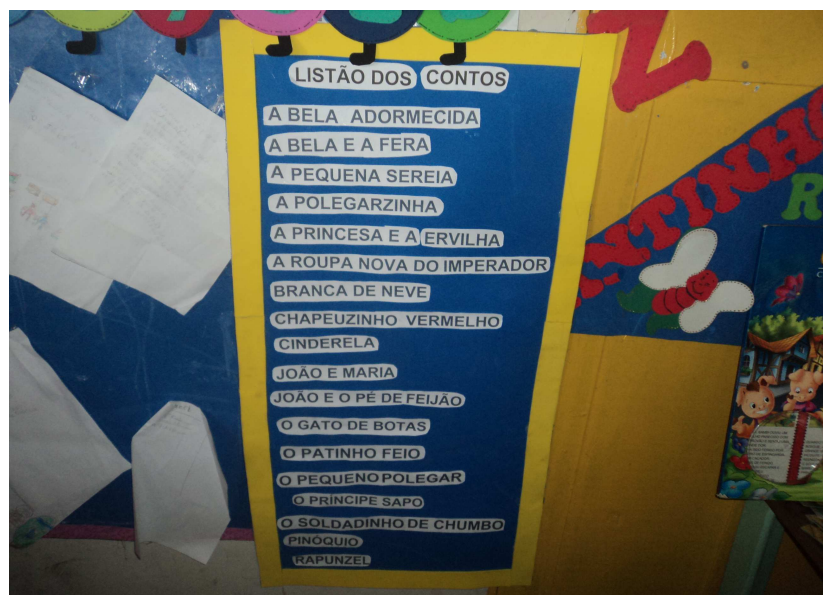 LISTÃO DOS CONTOS
A BELA ADORMECIDA
A BELA E A FERA
A PEQUENA SEREIA
A POLEGARZINHA
A PRINCESA E A ERVILHA
A ROUPA NOVA DO IMPERADOR
BRANCA DE NEVE
CHAPEUZINHO VERMELHO
CINDERELA
JOÃO E MARIA
JOÃO E O PÉ DE FEIJÃO
O GATO DE BOTAS
O PATINHO FEIO
O PEQUENO POLEGAR
O PRÍNCIPE SAPO
O SOLDADINHO DE CHUMBO
PINÓQUIO
RAPUNZEL